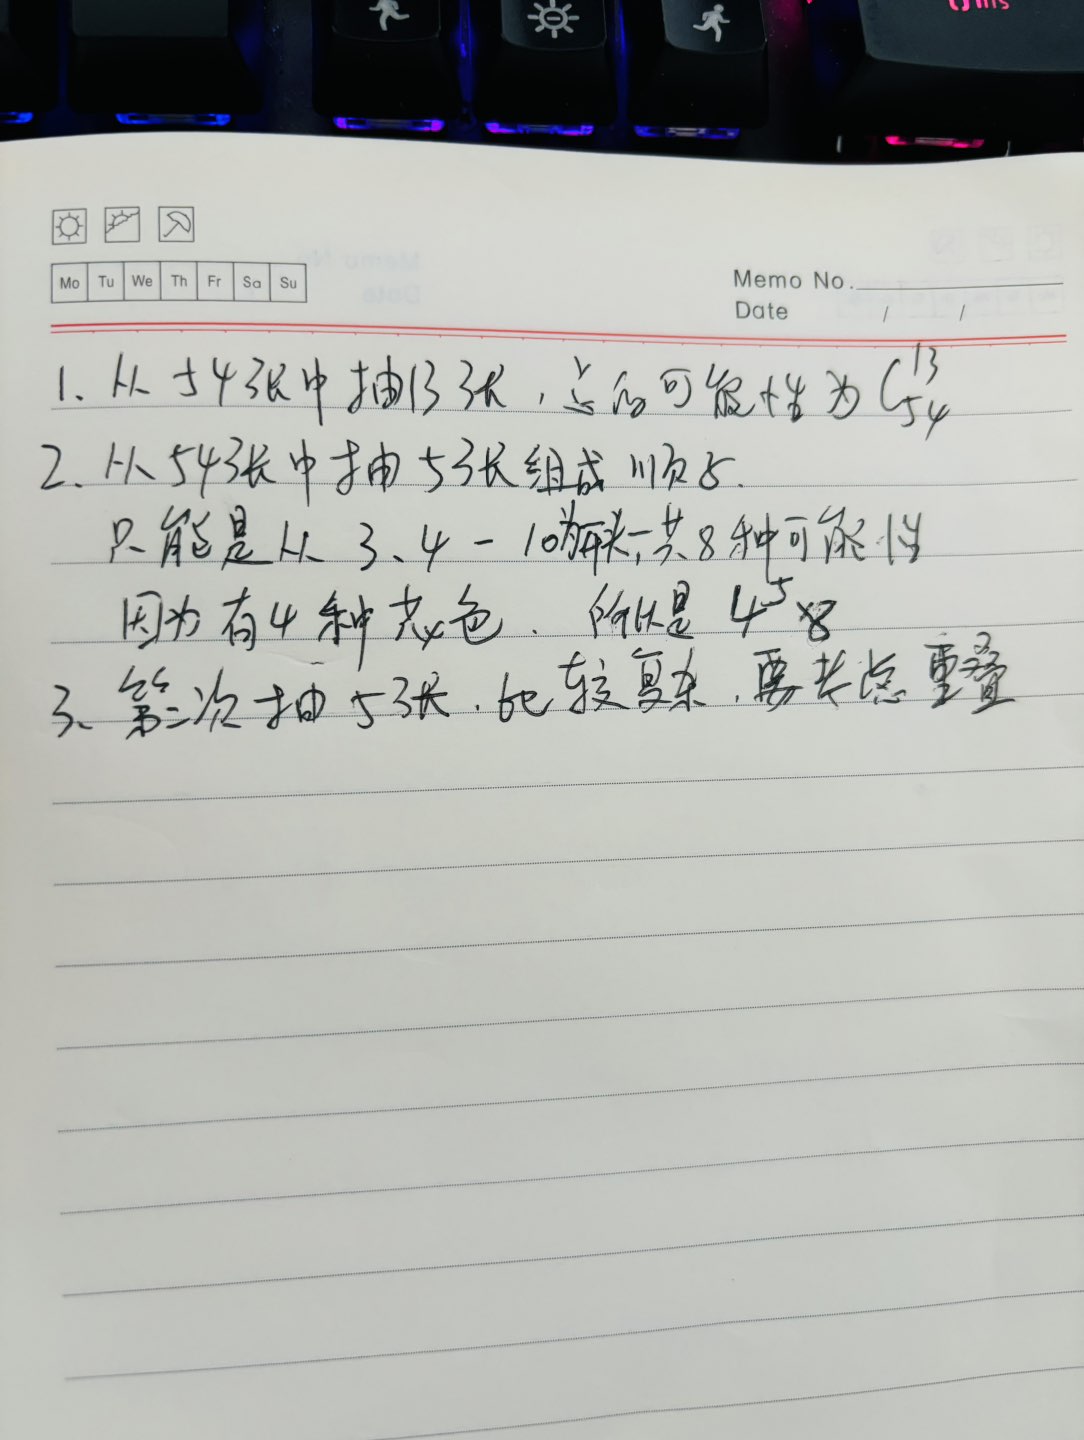 Mo Tu We Th Fr Sa Su
Memo No.
Date / /
1. 从54张中抽13张，总的可能性为C₅₄¹³
2. 从54张中抽5张组成顺5.
只能是从 3、4-10为开头，一共8种可能性
因为有4种花色. 所以是 4⁵×8
3、第二次抽53张，比较复杂，要考虑重叠